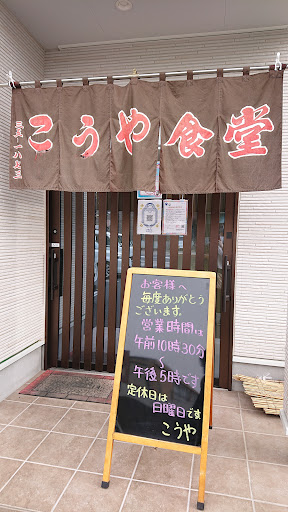 こうや食堂
三五一一八七三
お客様へ
毎度ありがとう
ございます。
営業時間は
午前10時30分
～
午後5時です
定休日は
日曜日です
こうや